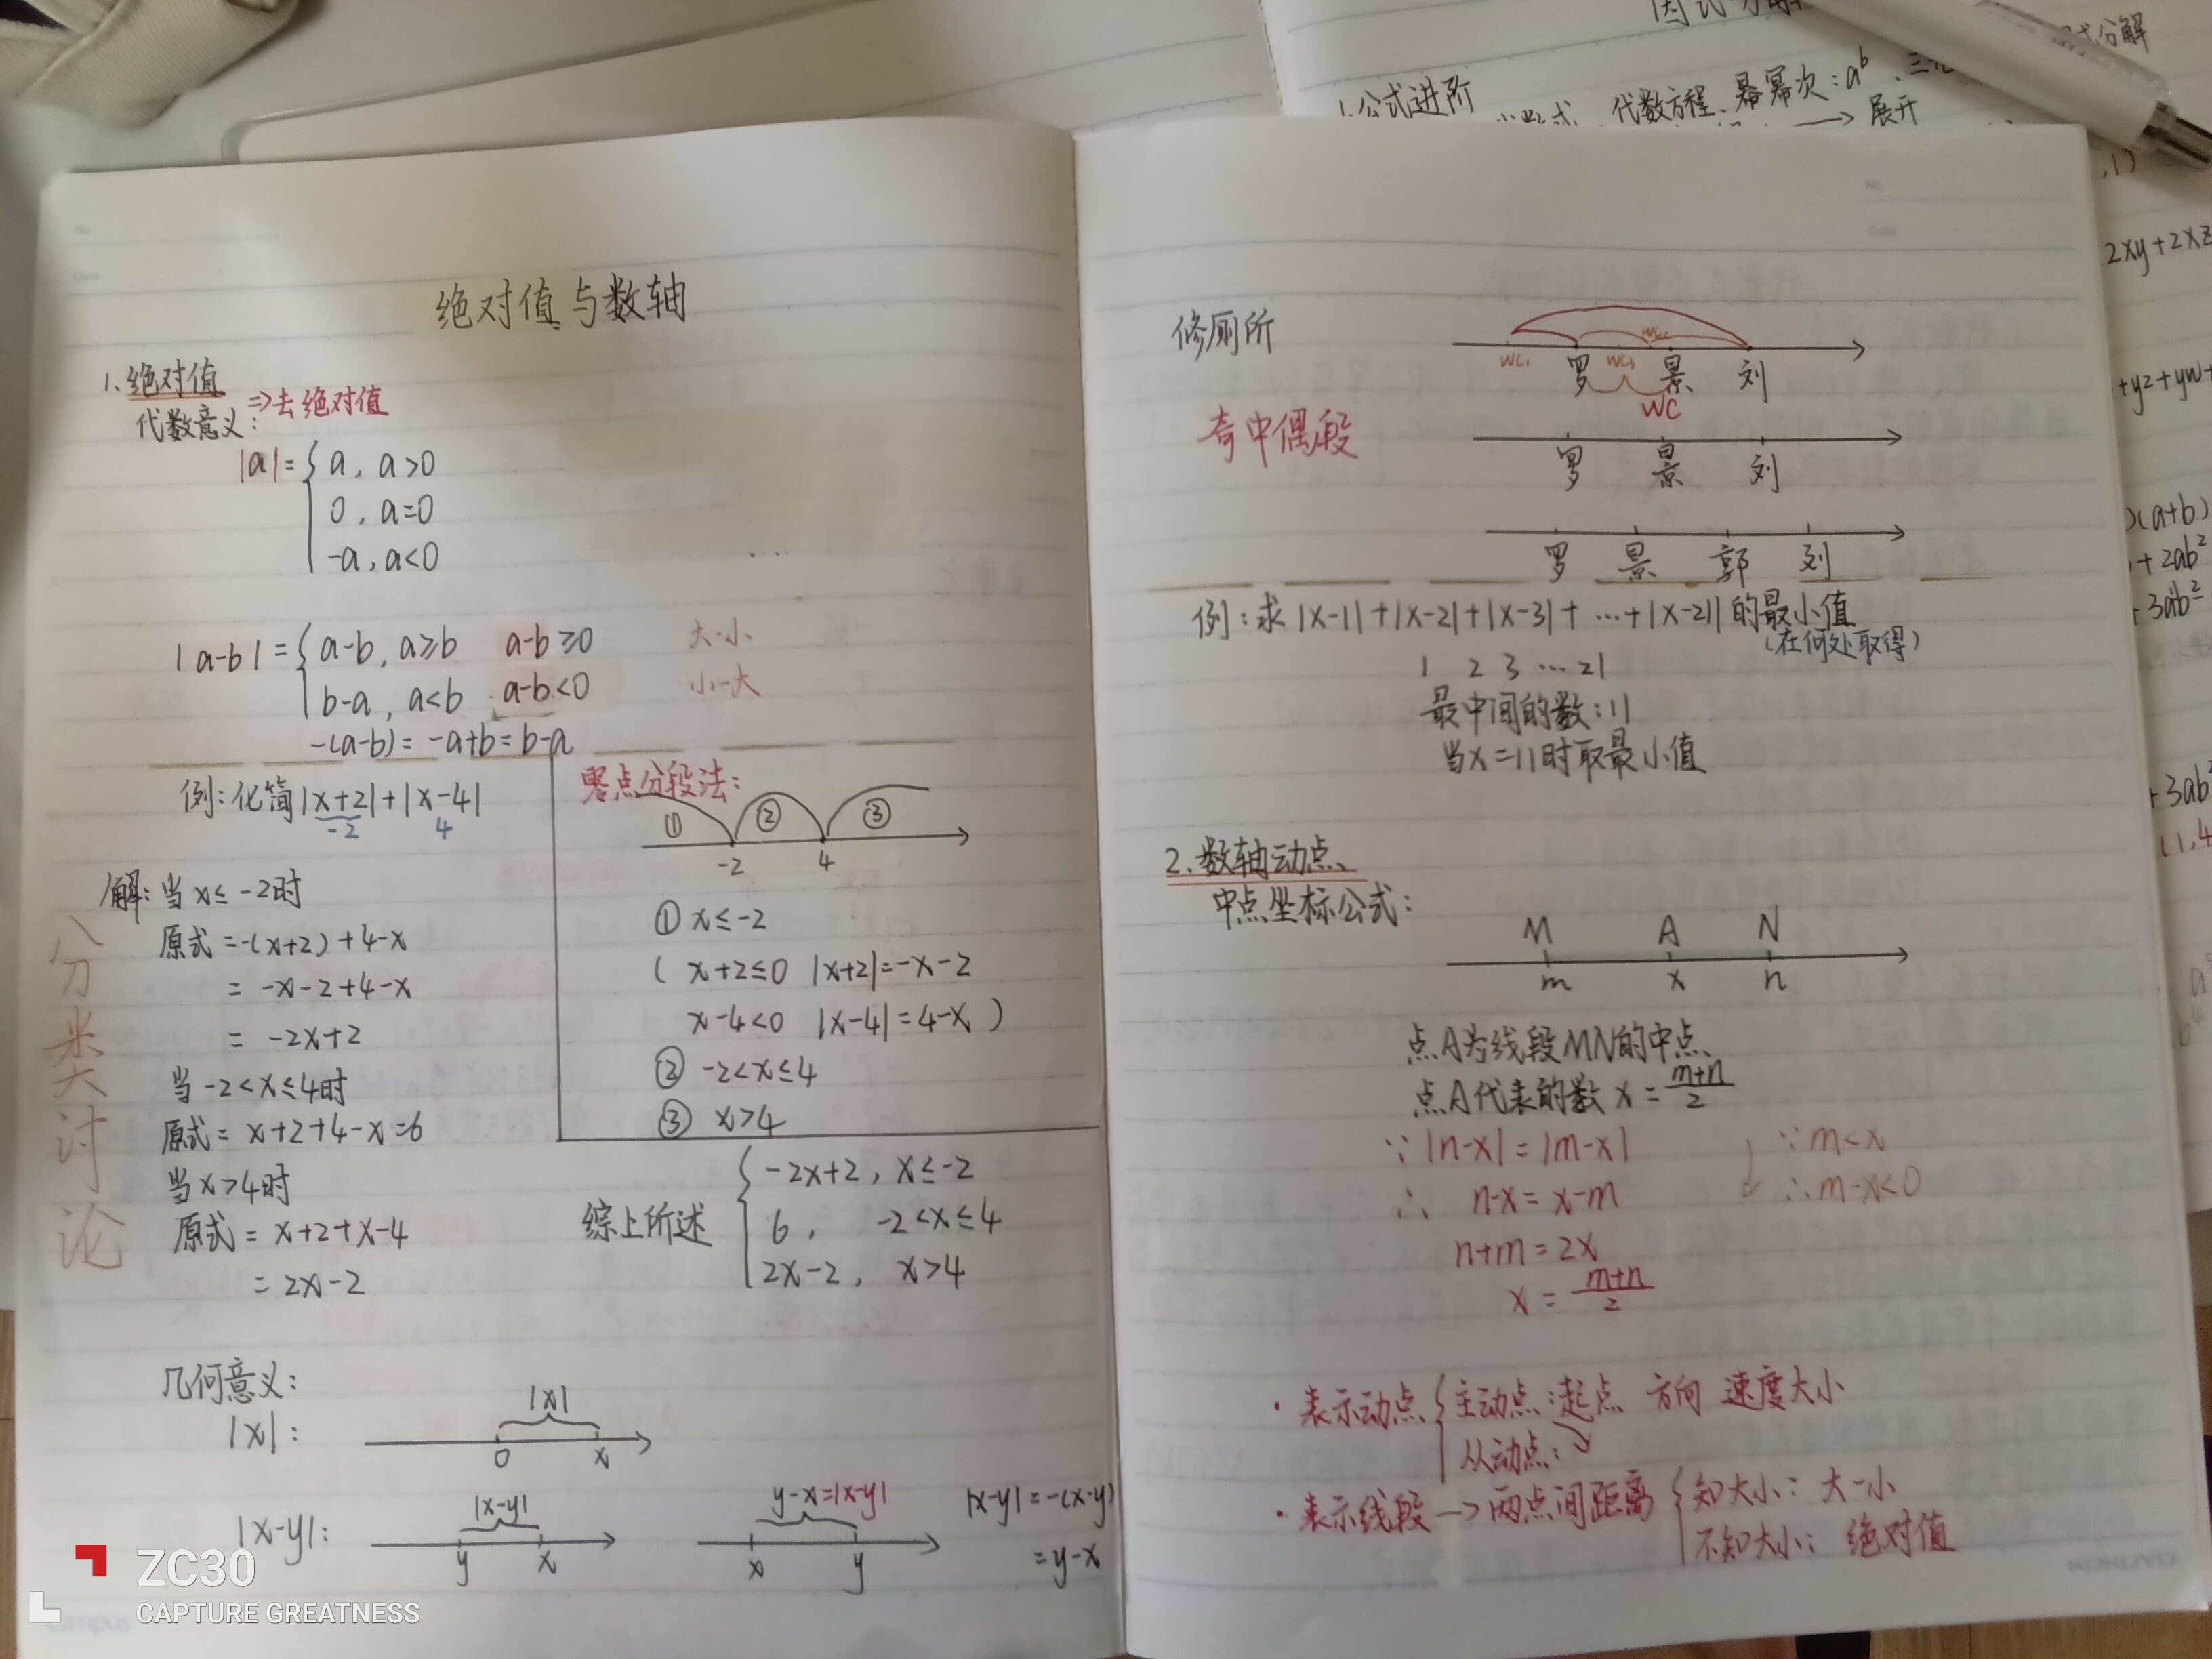 绝对值与数轴
1. 绝对值
代数意义: ⇒去绝对值
|a|={ a, a>0
0, a=0
-a, a<0
|a-b|={ a-b, a≥b a-b≥0 大-小
b-a, a<b a-b<0 小-大
-(a-b)=-a+b=b-a
例:化简|x+2|+|x-4|
-2 4
解:当x≤-2时
原式=-(x+2)+4-x
=-x-2+4-x
=-2x+2
当-2<x≤4时
原式=x+2+4-x=6
当x>4时
原式=x+2+x-4
=2x-2
分类讨论
零点分段法:
① ② ③
-2 4
① x≤-2
( x+2≤0 |x+2|=-x-2
x-4<0 |x-4|=4-x )
② -2<x≤4
③ x>4
综上所述 { -2x+2, x≤-2
6, -2<x≤4
2x-2, x>4
几何意义:
|x|: |x|
0 x
|x-y|: |x-y| y-x=|x-y| |x-y|=-(x-y)
y x x y =y-x
ZC30
CAPTURE GREATNESS
campus
修厕所
WC2
WC1 罗 WC3 景 刘
WC
奇中偶段
罗 景 刘
罗 景 郭 刘
例:求|x-1|+|x-2|+|x-3|+…+|x-21|的最小值
(在何处取得)
1 2 3 … 21
最中间的数:11
当x=11时取最小值
2. 数轴动点
中点坐标公式:
M A N
m x n
点A为线段MN的中点
点A代表的数 x=(m+n)/2
∵ |n-x|=|m-x| ∵m<x
∴ n-x=x-m ∴m-x<0
n+m=2x
x=(m+n)/2
·表示动点{ 主动点:起点 方向 速度大小
从动点:
·表示线段→两点间距离{ 知大小:大-小
不知大小:绝对值
KOKUYO
No.
Date
1.公式进阶
代数方程、幂幂次:aᵇ、
→展开
式分解
,1)
2xy+2xz
+yz+yw+
)(a+b)
+2ab²
+3ab²
+3ab²
(1,4